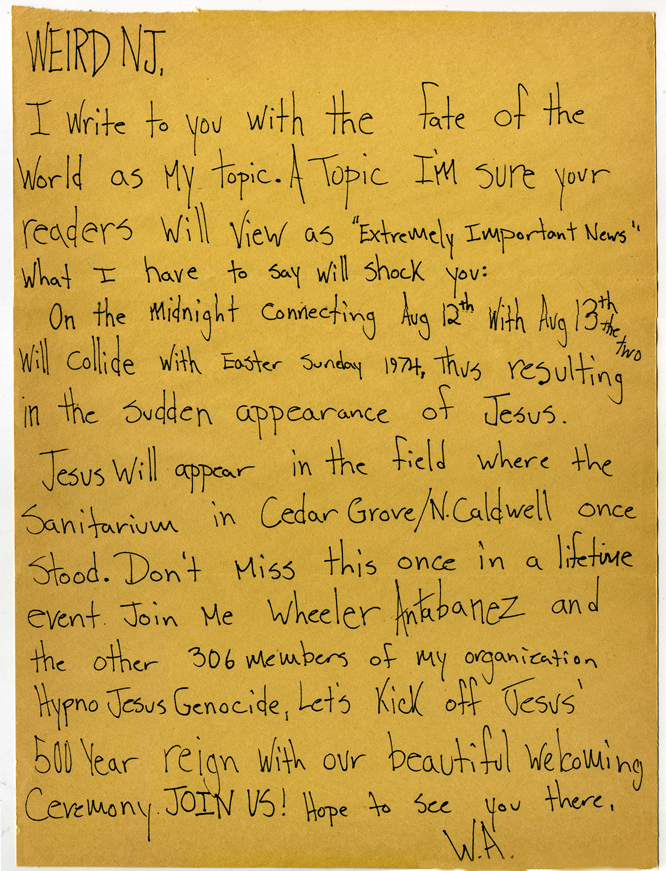 WEIRD NJ,
I write to you with the fate of the
World as My topic. A Topic I'm sure your
readers will view as "Extremely Important News"
What I have to say will shock you:
On the Midnight Connecting Aug 12th With Aug 13th the two
will collide with Easter Sunday 1974, thus resulting
in the sudden appearance of Jesus.
Jesus Will appear in the field where the
Sanitarium in Cedar Grove/N. Caldwell once
stood. Don't Miss this once in a lifetime
event. Join Me Wheeler Antabanez and
the other 306 members of my organization
Hypno Jesus Genocide, Let's Kick off Jesus'
500 Year reign with our beautiful Welcoming
Ceremony. JOIN US! Hope to see you there,
W.A.